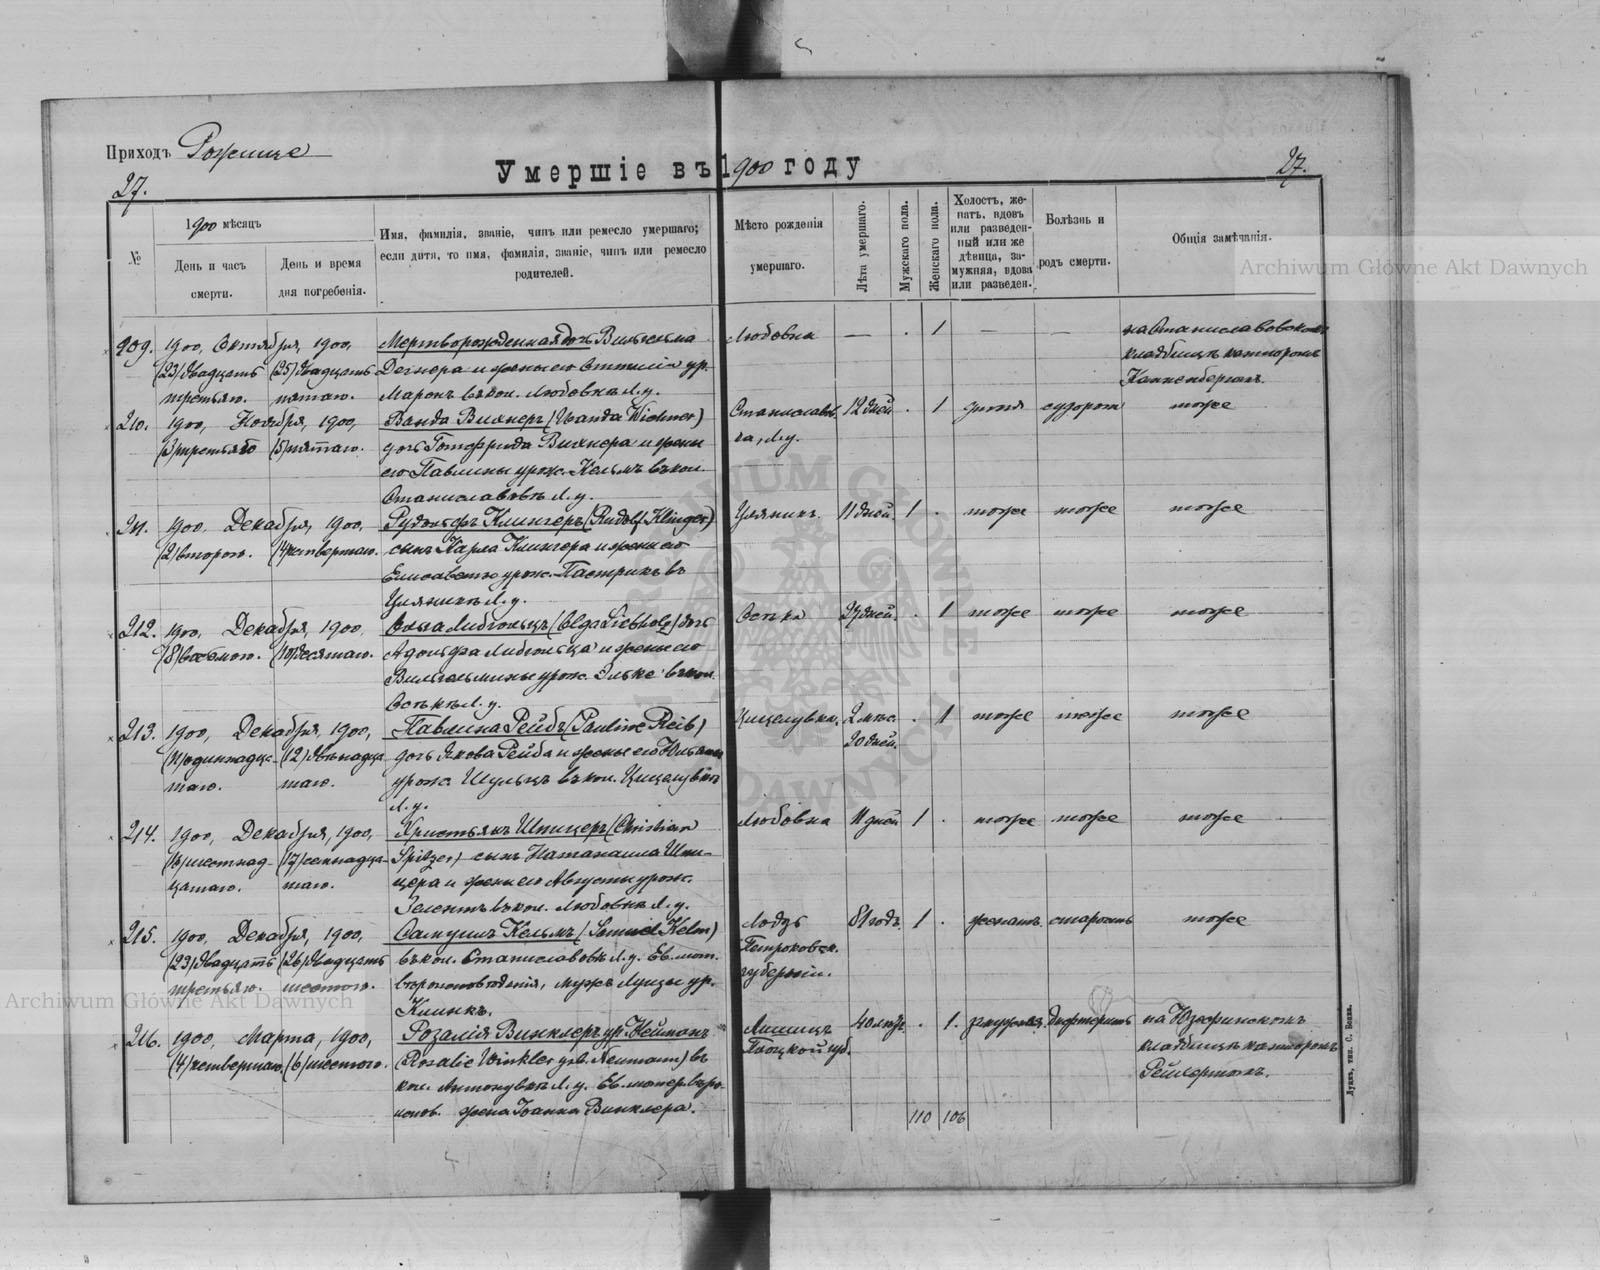 Приходъ Рожище
Умершіе въ 1900 году
27.
27.
№
1900 мѣсяцъ
День и часъ
смерти.
День и время
дня погребенія.
Имя, фамилія, званіе, чинъ или ремесло умершаго;
если дитя, то имя, фамилія, званіе, чинъ или ремесло
родителей.
Мѣсто рожденія
умершаго.
Лѣта умершаго.
Мужскаго пола.
Женскаго пола.
Холостъ, же-
натъ, вдовъ
или разведен-
ный или же
дѣвица, за-
мужняя, вдова
или разведен.
Болѣзнь и
родъ смерти.
Общія замѣчанія.
209. 1900, Октября, 1900,
(23) двадцать (25) двадцать
третьяго. пятаго.
Мертворожденная дочь Вильгельма
Дегнера и жены его Оттиліи ур.
Маронъ въ кол. Любовкѣ Л. у.
Любовка — . 1 — —
на Станиславовскомъ
кладбищѣ канторомъ
Конненбергомъ.
210. 1900, Ноября, 1900,
(3) третьяго (5) пятаго.
Ванда Вихнеръ (Wanda Wichner)
дочь Готфрида Вихнера и жены
его Павлины урож. Кельмъ въ кол.
Станиславовкѣ Л. у.
Станиславов-
ка, Л. у.
12 дней . 1 дитя судорож. тоже
211. 1900, Декабря, 1900,
(2) второго. (4) четвертаго.
Рудольфъ Клингеръ (Rudolf Klinger)
сынъ Карла Клингера и жены его
Елисаветы урож. Пастрикъ въ
Уляникѣ Л. у.
Уляникъ. 11 дней. 1 . тоже тоже тоже
212. 1900, Декабря, 1900,
(8) восьмого. (10) десятаго.
Ольга Либгольцъ (Olga Liebholz) дочь
Адольфа Либгольца и жены его
Вильгельмины урож. Эльке въ кол.
Осѣкѣ Л. у.
Осѣка 27 дней. . 1 тоже тоже тоже
213. 1900, Декабря, 1900,
(11) одиннадца- (12) двѣнадца
таго. таго.
Павлина Рейбъ (Pauline Reib)
дочь Якова Рейба и жены его Юліанны
урож. Шульцъ въ кол. Цицелувкѣ
Л. у.
Цицелувка. 2 мѣс.
20 дней.
. 1 тоже тоже тоже
214. 1900, Декабря, 1900,
(16) шестнад- (17) семнадца-
цатаго. таго.
Кристьянъ Шпицеръ (Christian
Spitzer) сынъ Натанаила Шпи-
цера и жены его Августы урож.
Зелентъ въ кол. Любовкѣ Л. у.
Любовка 11 дней 1 . тоже тоже тоже
215. 1900, Декабря, 1900,
(23) двадцать (26) двадцать
третьяго. шестого.
Самуилъ Кельмъ (Samuel Kelm)
въ кол. Станиславовкѣ Л. у. Ев. лют.
вѣроисповѣданія, мужъ Луизы ур.
Клинкъ.
Лодзь
Петроковск.
губерніи.
81 годъ. 1 . женатъ. старость тоже
216. 1900, Марта, 1900,
(4) четвертаго. (6) шестого.
Розалія Винклеръ ур. Нейманъ
(Rosalie Winkler geb. Neumann) въ
кол. Антонувкѣ Л. у. Ев. лютер. вѣро
испов. жена Іоанна Винклера.
Плоцкой губ.
40 лѣтъ. . 1. замужняя. дифтеритъ
на Юзефинскомъ
кладбищѣ канторомъ
110 106
Луцкъ, тип. С. Бонка.
Archiwum Główne Akt Dawnych
Archiwum Główne Akt Dawnych
ARCHIWUM GŁÓWNE AKT DAWNYCH